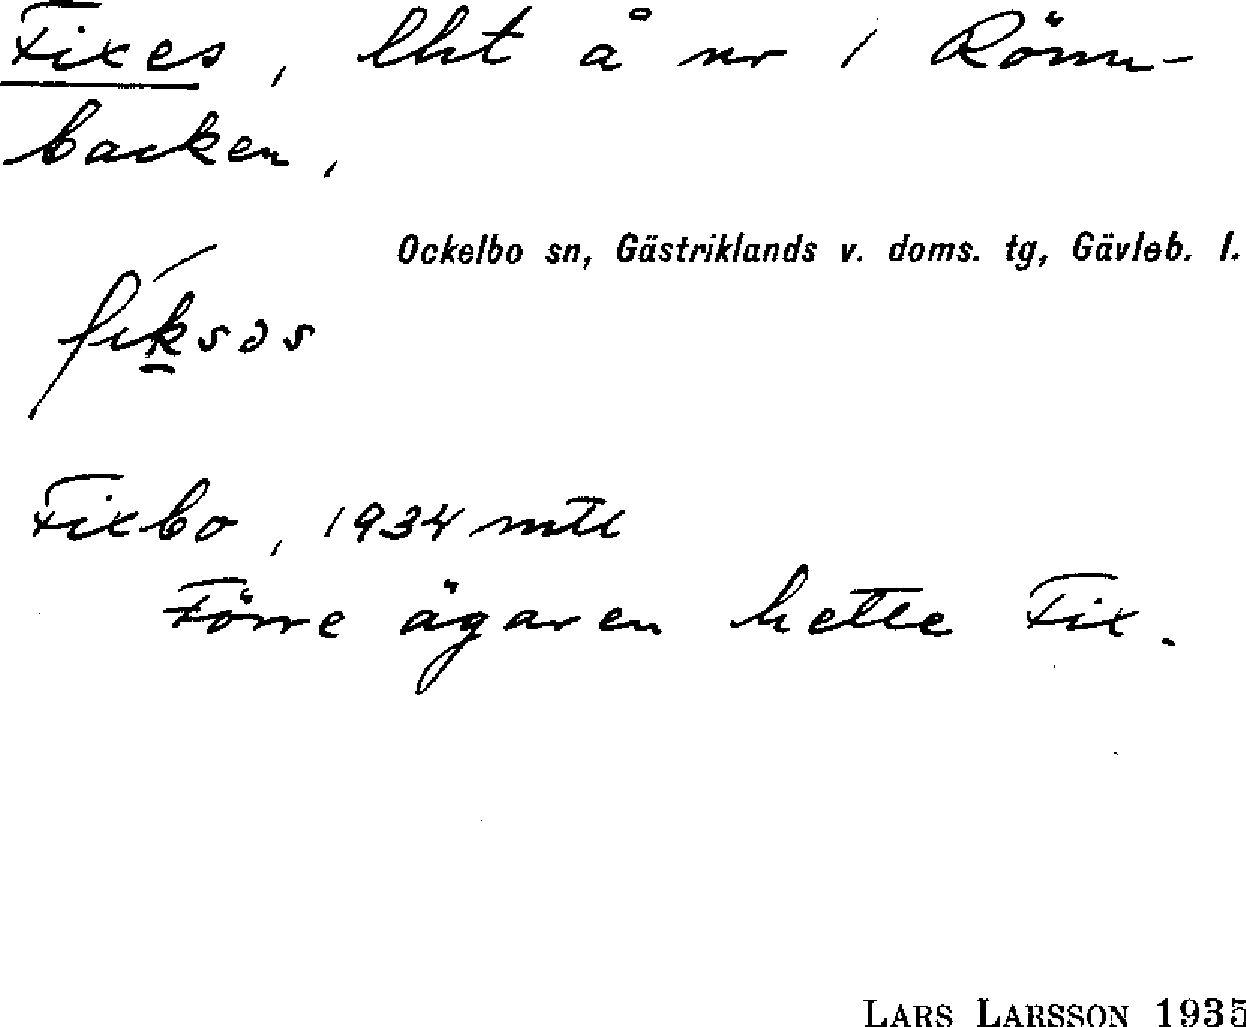 Fixes, lht å nr 1 Rönn-
backen.
Ockelbo sn, Gästriklands v. doms. tg, Gävleb. l.
fiksəs
Fixbo, 1934 mtl
Förre ägaren hette Fix.
LARS LARSSON 1935